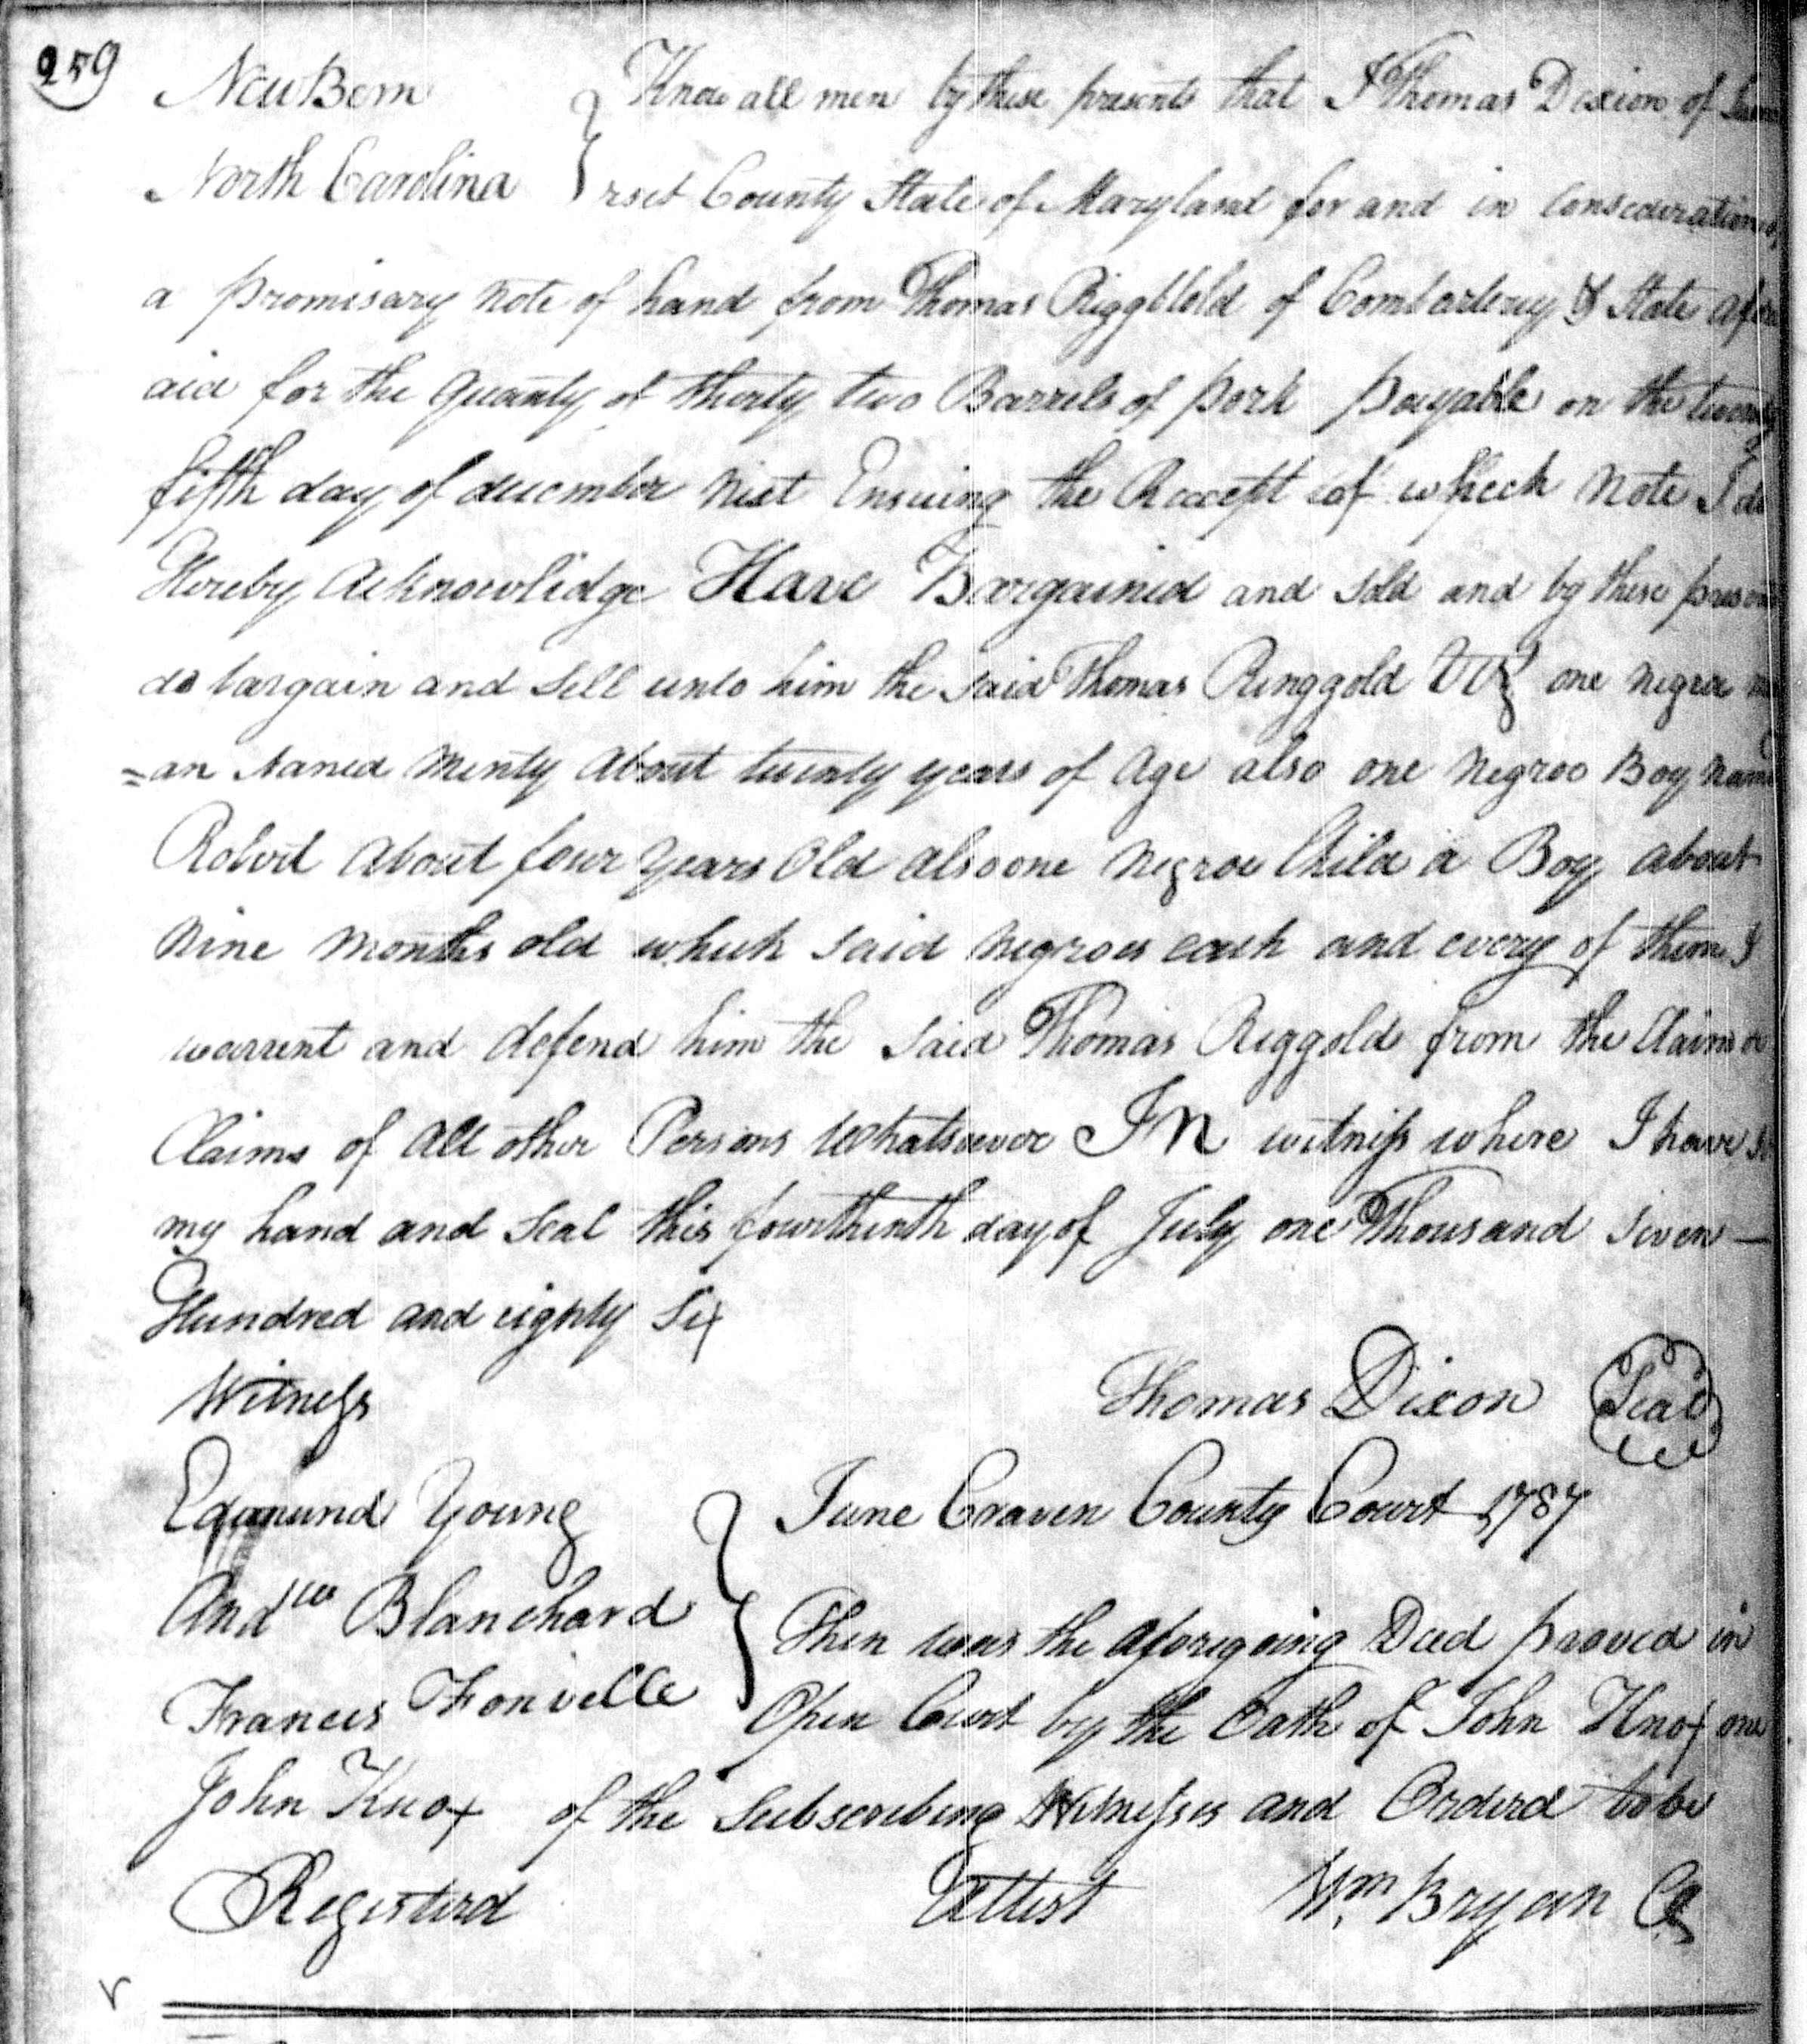 259
NewBern } Know all men by these presents that I Thomas Dixion of
North Carolina } rset County State of Maryland for and in Consederation of
a promisary note of hand from Thomas Riggbold of & State afore
aid for the Quanty of thirty two Barrels of pork payable on the twenty
fifth day of december next Ensuing the Receept of which Note I do
Hereby Acknowlidge Have Bargained and sold and by these presen
do bargain and sell unto him the said Thomas Ringgold Viz one negroe
=an Named Menty About twenty years of Age also one Negroo Boy name
Robert About four years Old also one Negroe Child a Boy about
Nine Months old which said Negroes each and every of them I
warrent and defend him the said Thomas Riggold from the Claim or
Claims of All other Persons Whatsoever In witness where I have
my hand and seal this fourthenth day of July one Thousand seven —
Hundred and eighty Six
Witness Thomas Dixon Seal
Edmund Young } June Craven County Court 1787
Andw Blanchard } Then was the aforegoing Deed proved in
Frances Fonville Open Court by the Oath of John Knox one
John Knox of the Subscribing Witnesses and Orderd to be
Registerd Attest Wm Bryan C